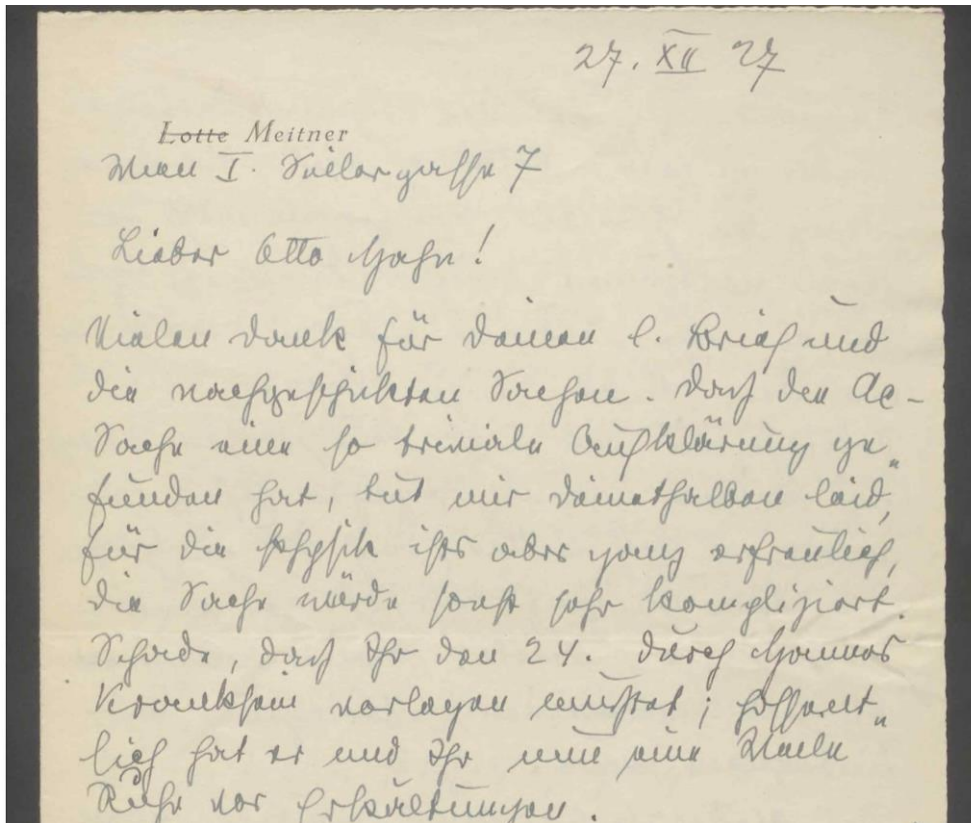 27. XII 27
Lotte Meitner
Wien I. Seilergasse 7
Lieber Otto Hahn!
Vielen Dank für Deinen l. Brief und
die nachgeschickten Sachen. Daß die Ac-
Sache eine so triviale Aufklärung ge„
funden hat, tut mir Deinethalben leid,
für die Physik ists aber ganz erfreulich,
die Sache würde sonst sehr kompliziert.
Schade, daß Ihr den 24. durch Hannos
Kranksein verlegen mußtet; hoffent„
lich hat er und Ihr nun eine Weile
Ruhe vor Erkältungen.